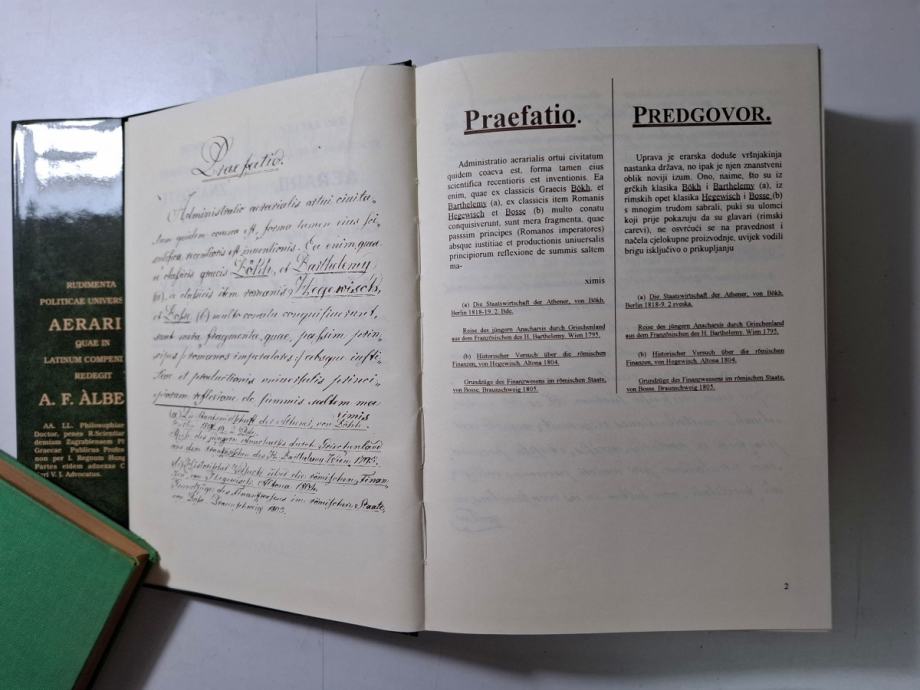 RUDIMENTA
POLITICAE UNIVERS
AERARI
QUAE IN
LATINUM COMPENI
REDEGIT
A. F. ÀLBE
AA. LL. Philosophiae
Doctor, penes R.Scientiar
demiam Zagrabiensem
Graecae Publicus Profes
non per I. Regnum Hung
Partes eidem adnexas C
V. J. Advocatus.
Praefatio.
Administratio aerarialis ortui civita„
tum quidem coaeva est, forma tamen eius sci„
entifica recentioris est inventionis. Ea enim, quae
e classicis graecis Bökh, et Barthelemy
(a), e classicis item romanis Hegewisch,
et Bosse (b) multo conatu conquisiverunt,
sunt mera fragmenta, quae, passim prin„
cipes (romanos imperatores) absque iusti„
tiae et productionis universalis princi„
piorum reflexione de summis saltem ma„
ximis
(a) Die Staatswirthschaft der Athener, von Bökh.
Reise des jüngern Anacharsis durch Griechenland
aus dem Französischen des H. Barthelemy Wien, 1795.
(b) Historischer Versuch über die römischen Finan„
zen, von Hegewisch. Altona 1804.
Grundzüge des Finanzwesens im römischen Staate,
von Bosse. Braunschweig 1805.
Praefatio.
Administratio aerarialis ortui civitatum
quidem coaeva est, forma tamen eius
scientifica recentioris est inventionis. Ea
enim, quae ex classicis Graecis Bökh, et
Barthelemy (a), ex classicis item Romanis
Hegewisch et Bosse (b) multo conatu
conquistverunt, sunt mera fragmenta, quae
passsim principes (Romanos imperatores)
absque iustitiae et productionis uniuersalis
principiorum reflexione de summis saltem
ma-
ximis
(a) Die Staatswirtschaft der Athener, von Bökh.
Berlin 1818-19. 2. Bde.
Reise des jüngern Anacharsis durch Griechenland
aus dem Französischen des H. Barthelemy. Wien 1795.
(b) Historischer Versuch über die römischen
Finanzen, von Hegewisch. Altona 1804.
Grundzüge des Finanzwesens im römischen Staate,
von Bosse. Braunschweig 1805.
PREDGOVOR.
Uprava je erarska doduše vršnjakinja
nastanka država, no ipak je njen znanstveni
oblik noviji izum. Ono, naime, što su iz
grčkih klasika Bökh i Barthelemy (a), iz
rimskih opet klasika Hegewisch i Bosse (b)
s mnogim trudom sabrali, puki su ulomci
koji prije pokazuju da su glavari (rimski
carevi), ne osvrćući se na pravednost i
načela cjelokupne proizvodnje, uvijek vodili
brigu isključivo o prikupljanju
(a) Die Staatswirtschaft der Athener, von Bökh.
Berlin 1818-9. 2 svezka.
Reise des jüngern Anacharsis durch Griechenland
aus dem Französischen des H. Barthelemy. Wien 1795.
(b) Historischer Versuch über die römischen
Finanzen, von Hegewisch. Altona 1804.
Grundzüge des Finanzwessens im römischen Staate,
von Bosse. Braunschweig 1805.
2